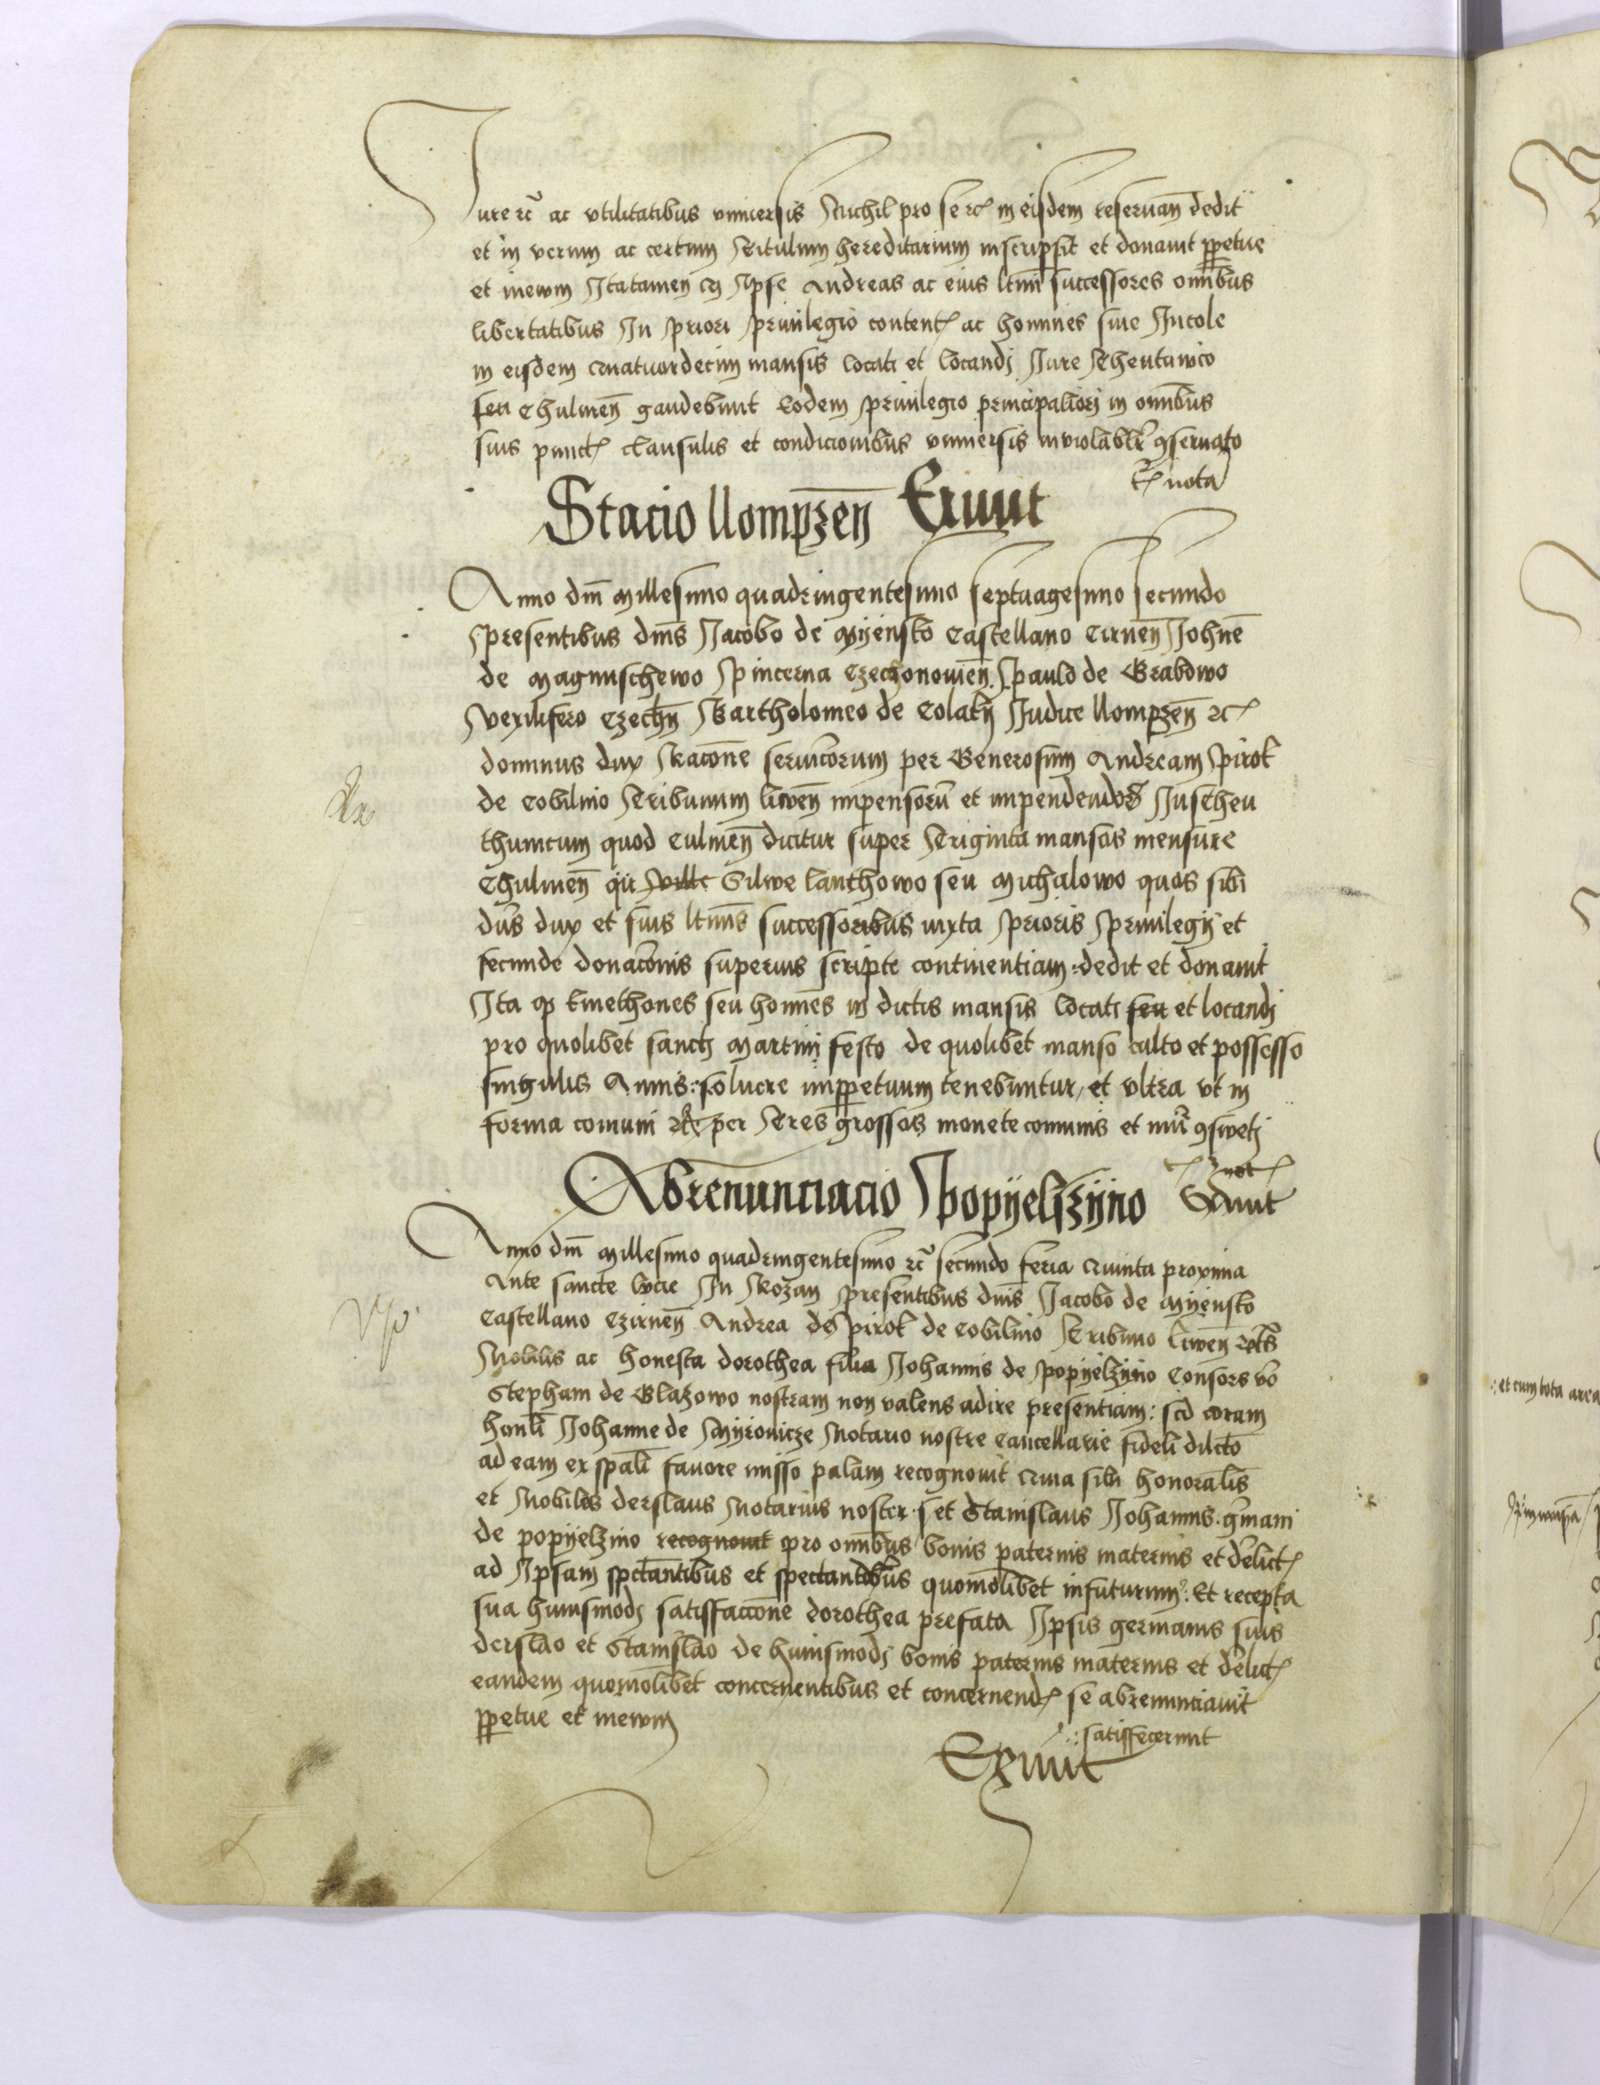 Iure etc ac vtilitatibus vniuersis Nichil pro se etc in eisdem reseruan dedit
et in verum ac certum Titulum hereditarium inscripsit et donauit ppetue
et inewm Itatamen q Ipse Andreas ac eius ltimi successores omnibus
libertatibus In priori priuilegio content ac homines siue Incole
in eisdem Quatuordecim mansis locati et locandi Iure Theutunico
seu Chulmen gaudebunt Eodem priuilegio principaliori in omnibus
suis punct clausulis et condicionibus vniuersis inviolabilr 9seruato
nota
Stacio llompzen Exiuit
Anno dni Millesimo quadringentesimo septuagesimo secundo
presentibus dnis Iacobo de Myensko Castellano Cirnen Iohne
de Magnuschewo Pincerna Czechonouien Paulo de Grabowo
Vexilifero Czechn Bartholomeo de Colatn Iudice llompzen etc
dominus dux Racone seruicorum per Generosum Andream Pirol
de Cobilino Tribunum liwen impensoru et impendendor Iustheu
thunicum quod Culmen dicitur super Triginta mansos mensure
Chulmen qu ville Silwe lanthowo seu Michalowo quos sibi
dns dux et suis ltimis successoribus iuxta prioris priuilegii et
secunde donacionis superius scripte continentiam dedit et donauit
Ita q kmethones seu homines in dictis mansis locati seu et locandi
pro quolibet sancti Martini festo de quolibet manso culto et possesso
singulis Annis soluere inppetuum tenebuntur et vltra vt in
forma comuni per Tres grossos monete comunis et nri 9sweti
not
Abrenunciacio Popyelzyno Exiuit
Anno dni Millesimo quadringentesimo etc secundo feria Quinta proxima
Ante sancte lucie In Rozan presentibus dnis Iacobo de Myensko
Castellano Czirnen Andrea de Pirol de Cobilino Tribuno liwen
Nobilis ac honesta dorothea filia Iohannis de Popyelzyno Consors vo
Stephani de Glazowo nostram non valens adire presentiam sed coram
honli Iohanne de Myronicze Notario nostre Cancellarie fideli dilcto
ad eam ex spali fauore misso palam recognouit Quia sibi honoralis
et Nobiles derslaus Notarius noster et Stanislaus Iohannis gmani
de popyelzino recognouit pro omnibus bonis paternis maternis et delict
ad Ipsam spctantibus et spectantibus quomolibet infuturum Et recepta
sua huiusmodi satisfaccione dorothea prefata Ipsis germanis suis
derslao et Stanislao de huiusmodi bonis paternis maternis et delict
eandem quomolibet concernentibus et concernend se abrenunciauit
ppetue et inewm
satisfecerunt
Exiuit
et cum tota area